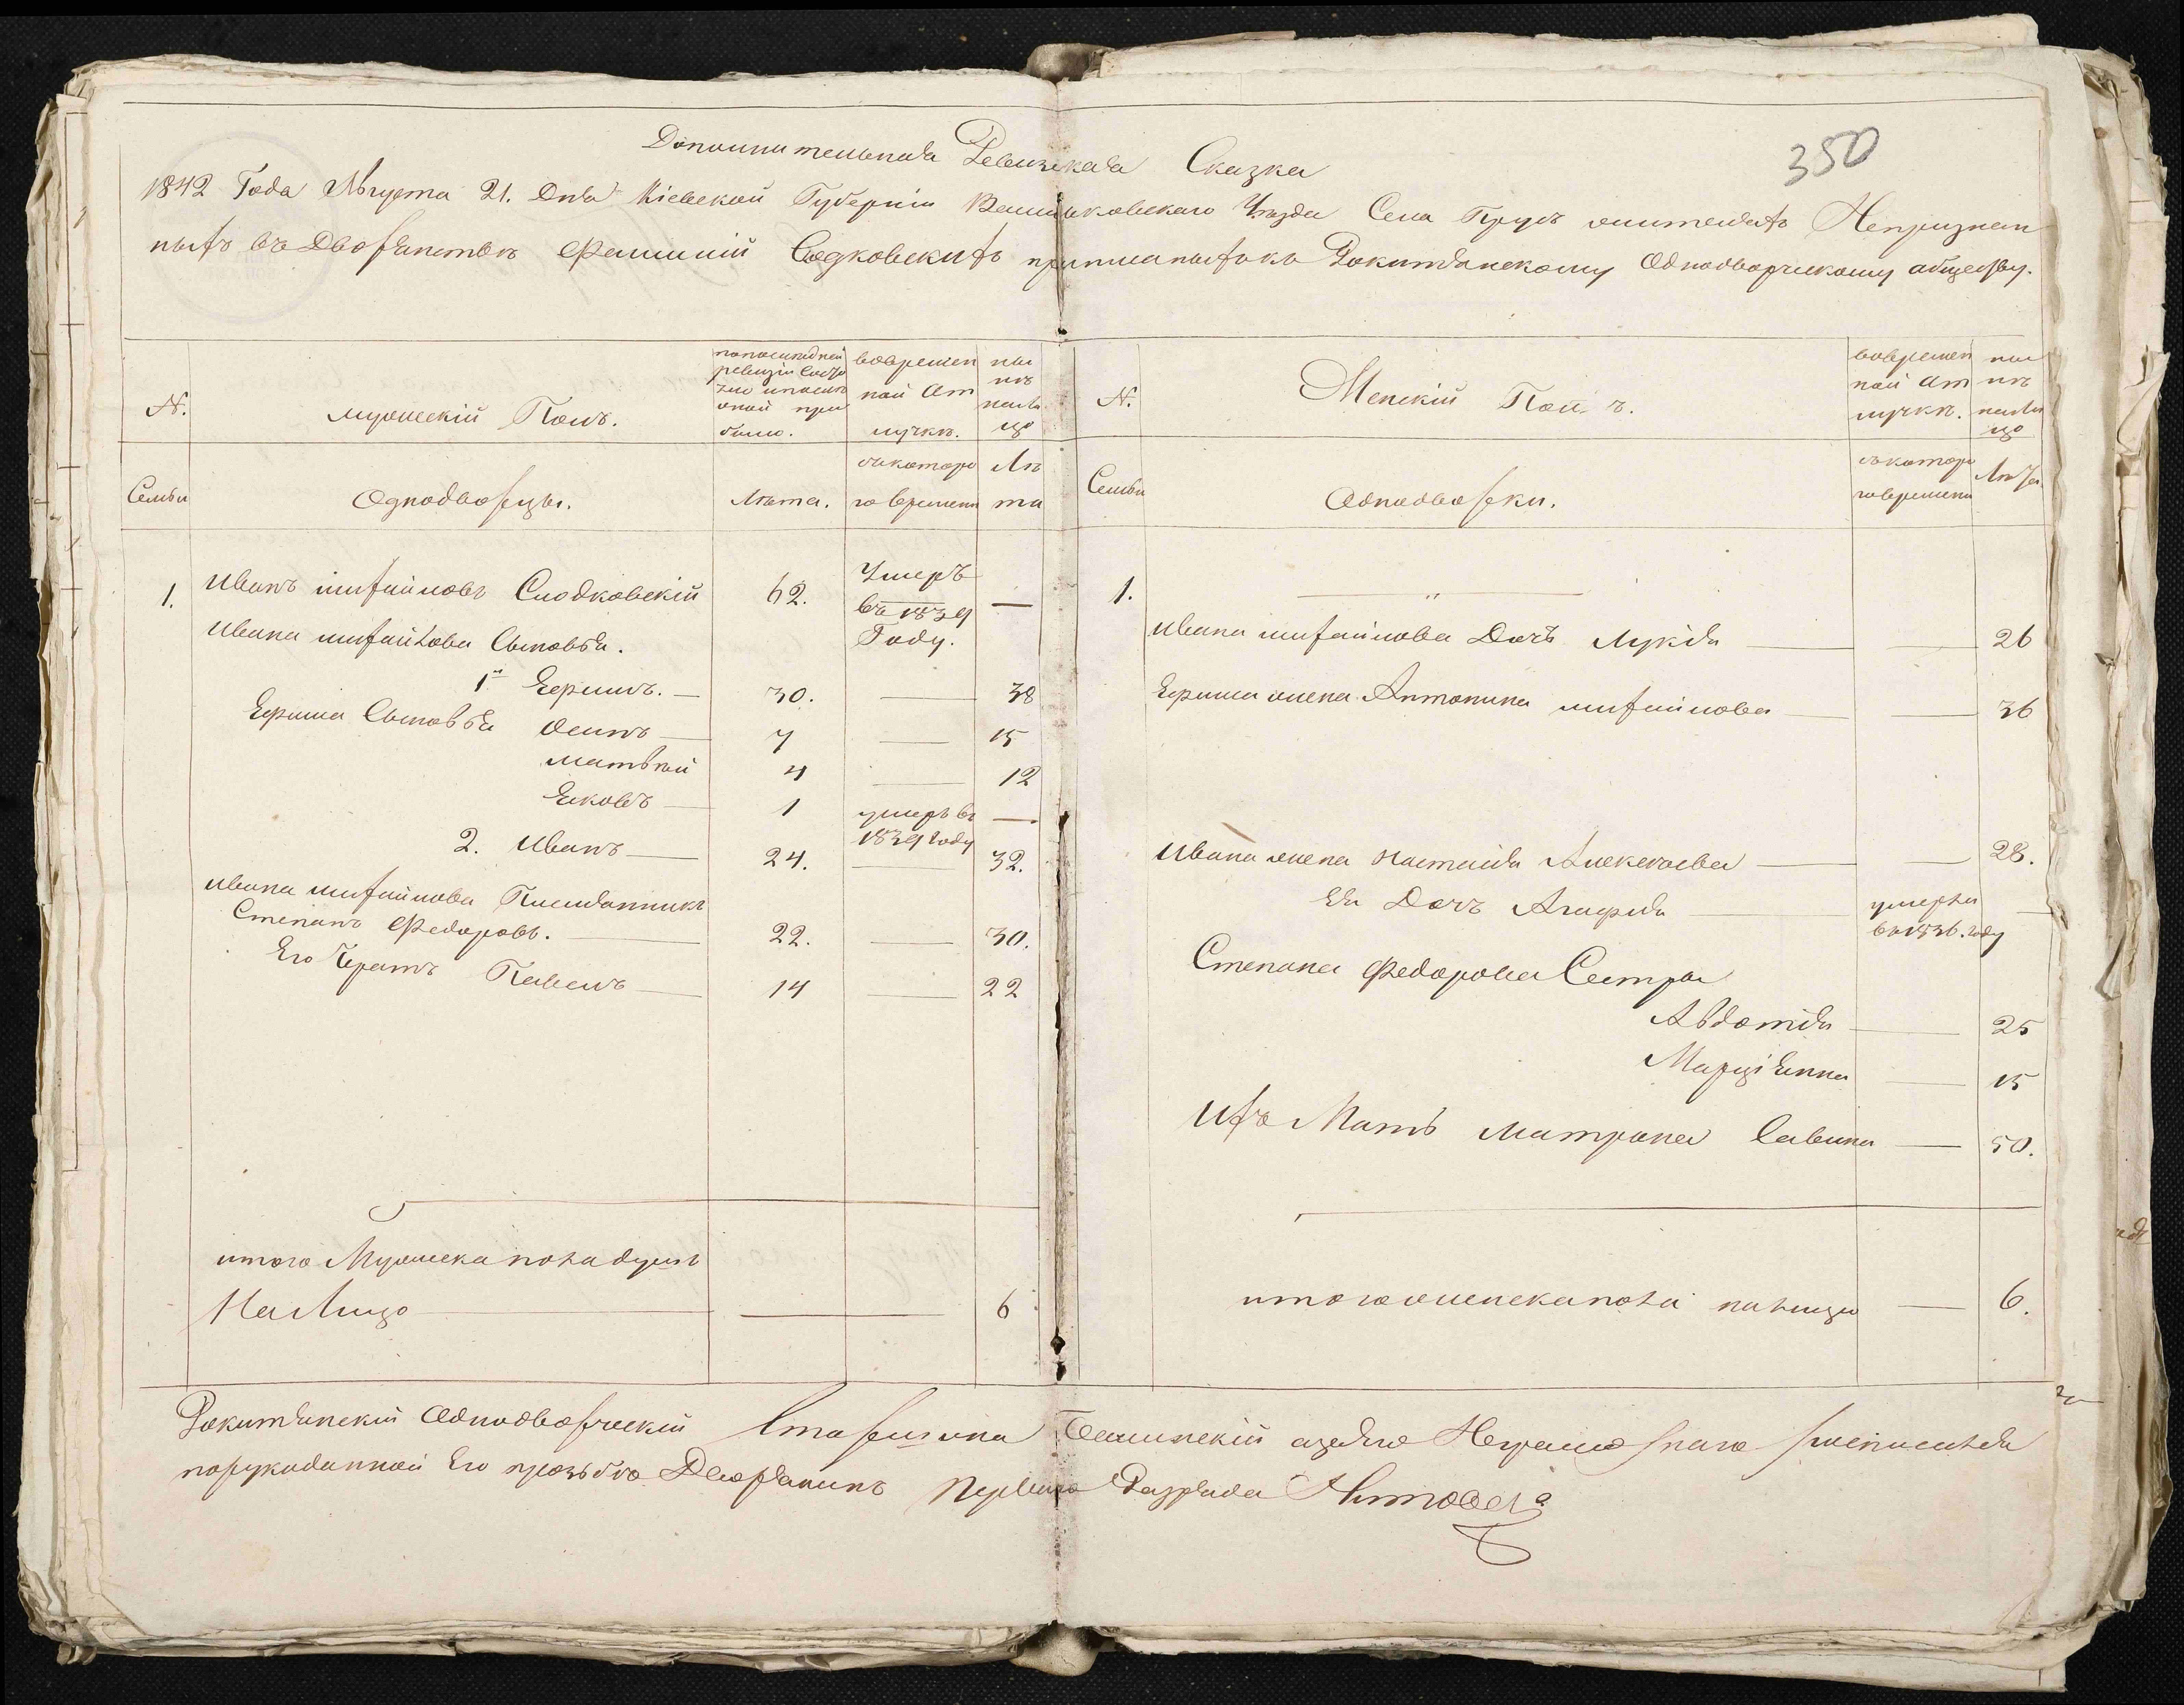 Дополнительная Ревизская Сказка
350
1842 Года Августа 21. Дня Кіевской Губерніи Васильковскаго Уезда Села жителяхъ Непризнан
ныхъ въ Дворянствѣ Фамиліи приписаныхъ къ Рокитянскому Однодворческому обществу.
N.
мужескій Полъ.
попоследней
ревизіи состо
яло ипослѣ
оной при
было.
вовремен
ной От
лучкѣ.
ны
нѣ
нали
цо
N.
Женскій Пол ъ.
вовремен
ной От
лучкѣ.
ны
нѣ
нали
цо
Семьи
Однодворцы.
Лѣта.
съкоторо
го времени
Лѣ
та
Семьи
Однодворки.
съкоторо
говремени
Лѣта
1.
Иванъ михайловъ Слодковскій
62.
Умеръ
въ 1839
Году.
—
1.
"
Ивана михайлова Сыновья.
Ивана михайлова Дочъ Лукія
26
1й Ефимъ.
30.
38
Ефима жена Антонина михайлова
36
Ефима Сыновья Осипъ
7
15
матвѣй
4
12
Яковъ
1
умеръ въ
1839 году
—
2. Иванъ
24.
32.
Ивана жена Настасія Алексѣева
28.
Ея Дочъ Агафія
умерла
въ 1836. году
Ивана михайлова Племянникъ
Степанъ Федоровъ.
22.
30.
Его Братъ Павелъ
14
22
Степана Федорова Сестры
Авдотія
25
Марціянна
15
Ихъ Мать матрона савина
50.
итого Мужеска пола душъ
На Лицо
6
итого женска пола на лицо
6.
Рокитянскій Однодворческій Старшина азанего Неграмотнаго росписался
порукоданной Его прозьбѣ Дворянинъ Перваго Разряда